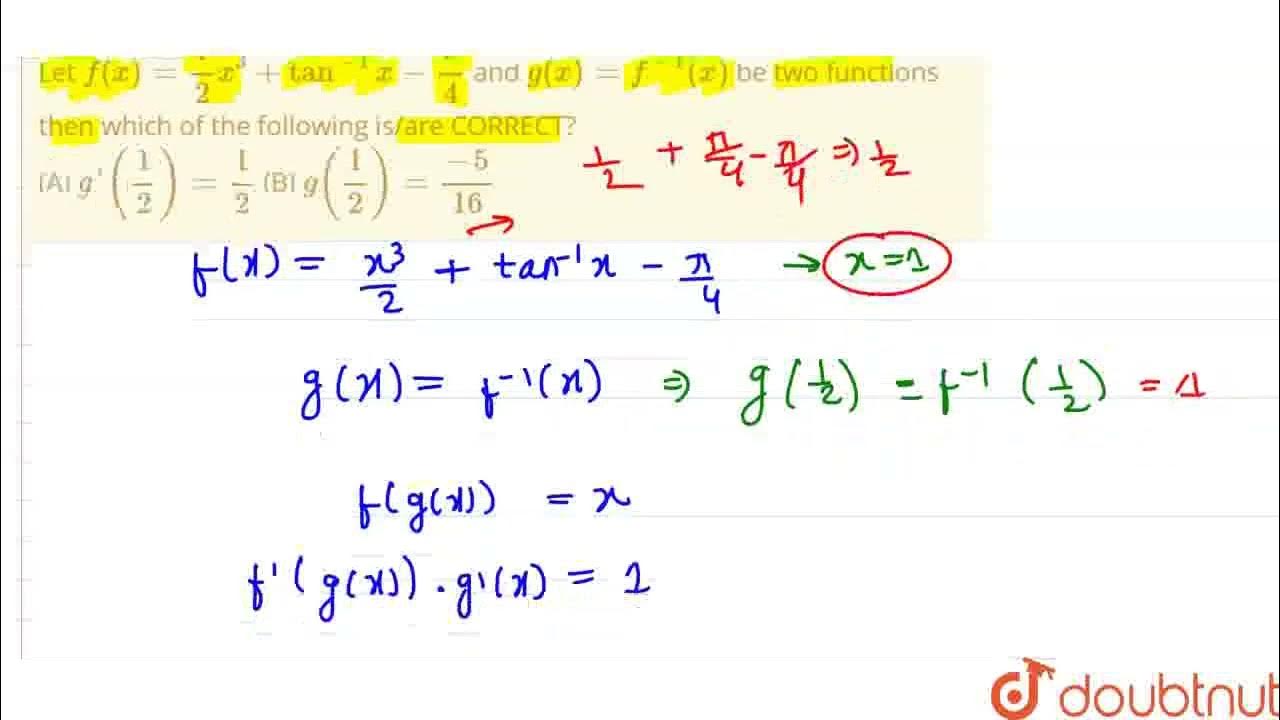 Let f(x) = 1/2 x³ + tan⁻¹ x − π/4 and g(x) = f⁻¹(x) be two functions
then which of the following is/are CORRECT?
(A) g'(1/2) = 1/2 (B) g(1/2) = −5/16
1/2 + π/4 − π/4 ⇒ 1/2
f(x) = x³/2 + tan⁻¹x − π/4 → x=1
g(x) = f⁻¹(x) ⇒ g(1/2) = f⁻¹(1/2) = 1
f(g(x)) = x
f'(g(x)) . g'(x) = 1
doubtnut